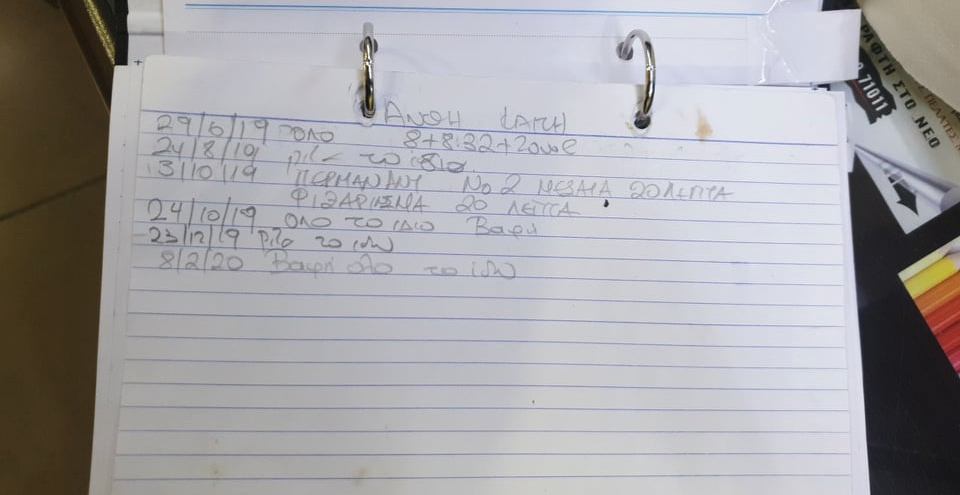 ΑΝΘΗ
29/6/19 ολο 8+8.32+
24/8/19 ριζα το ιδιο
13/10/19 ΠΕΡΜΑΝΑΝΤ Νο 2 ΜΕΣΑΙΑ 20 ΛΕΠΤΑ
ΦΙΞΑΡΙΣΜΑ 20 ΛΕΠΤΑ
24/10/19 ολο το ιδιο Βαφη
23/12/19 ριζα το ιδιο
8/2/20 Βαφη ολο το ιδιο
ΡΑΦΤΗ ΣΤΟ ΝΕΟ
71011